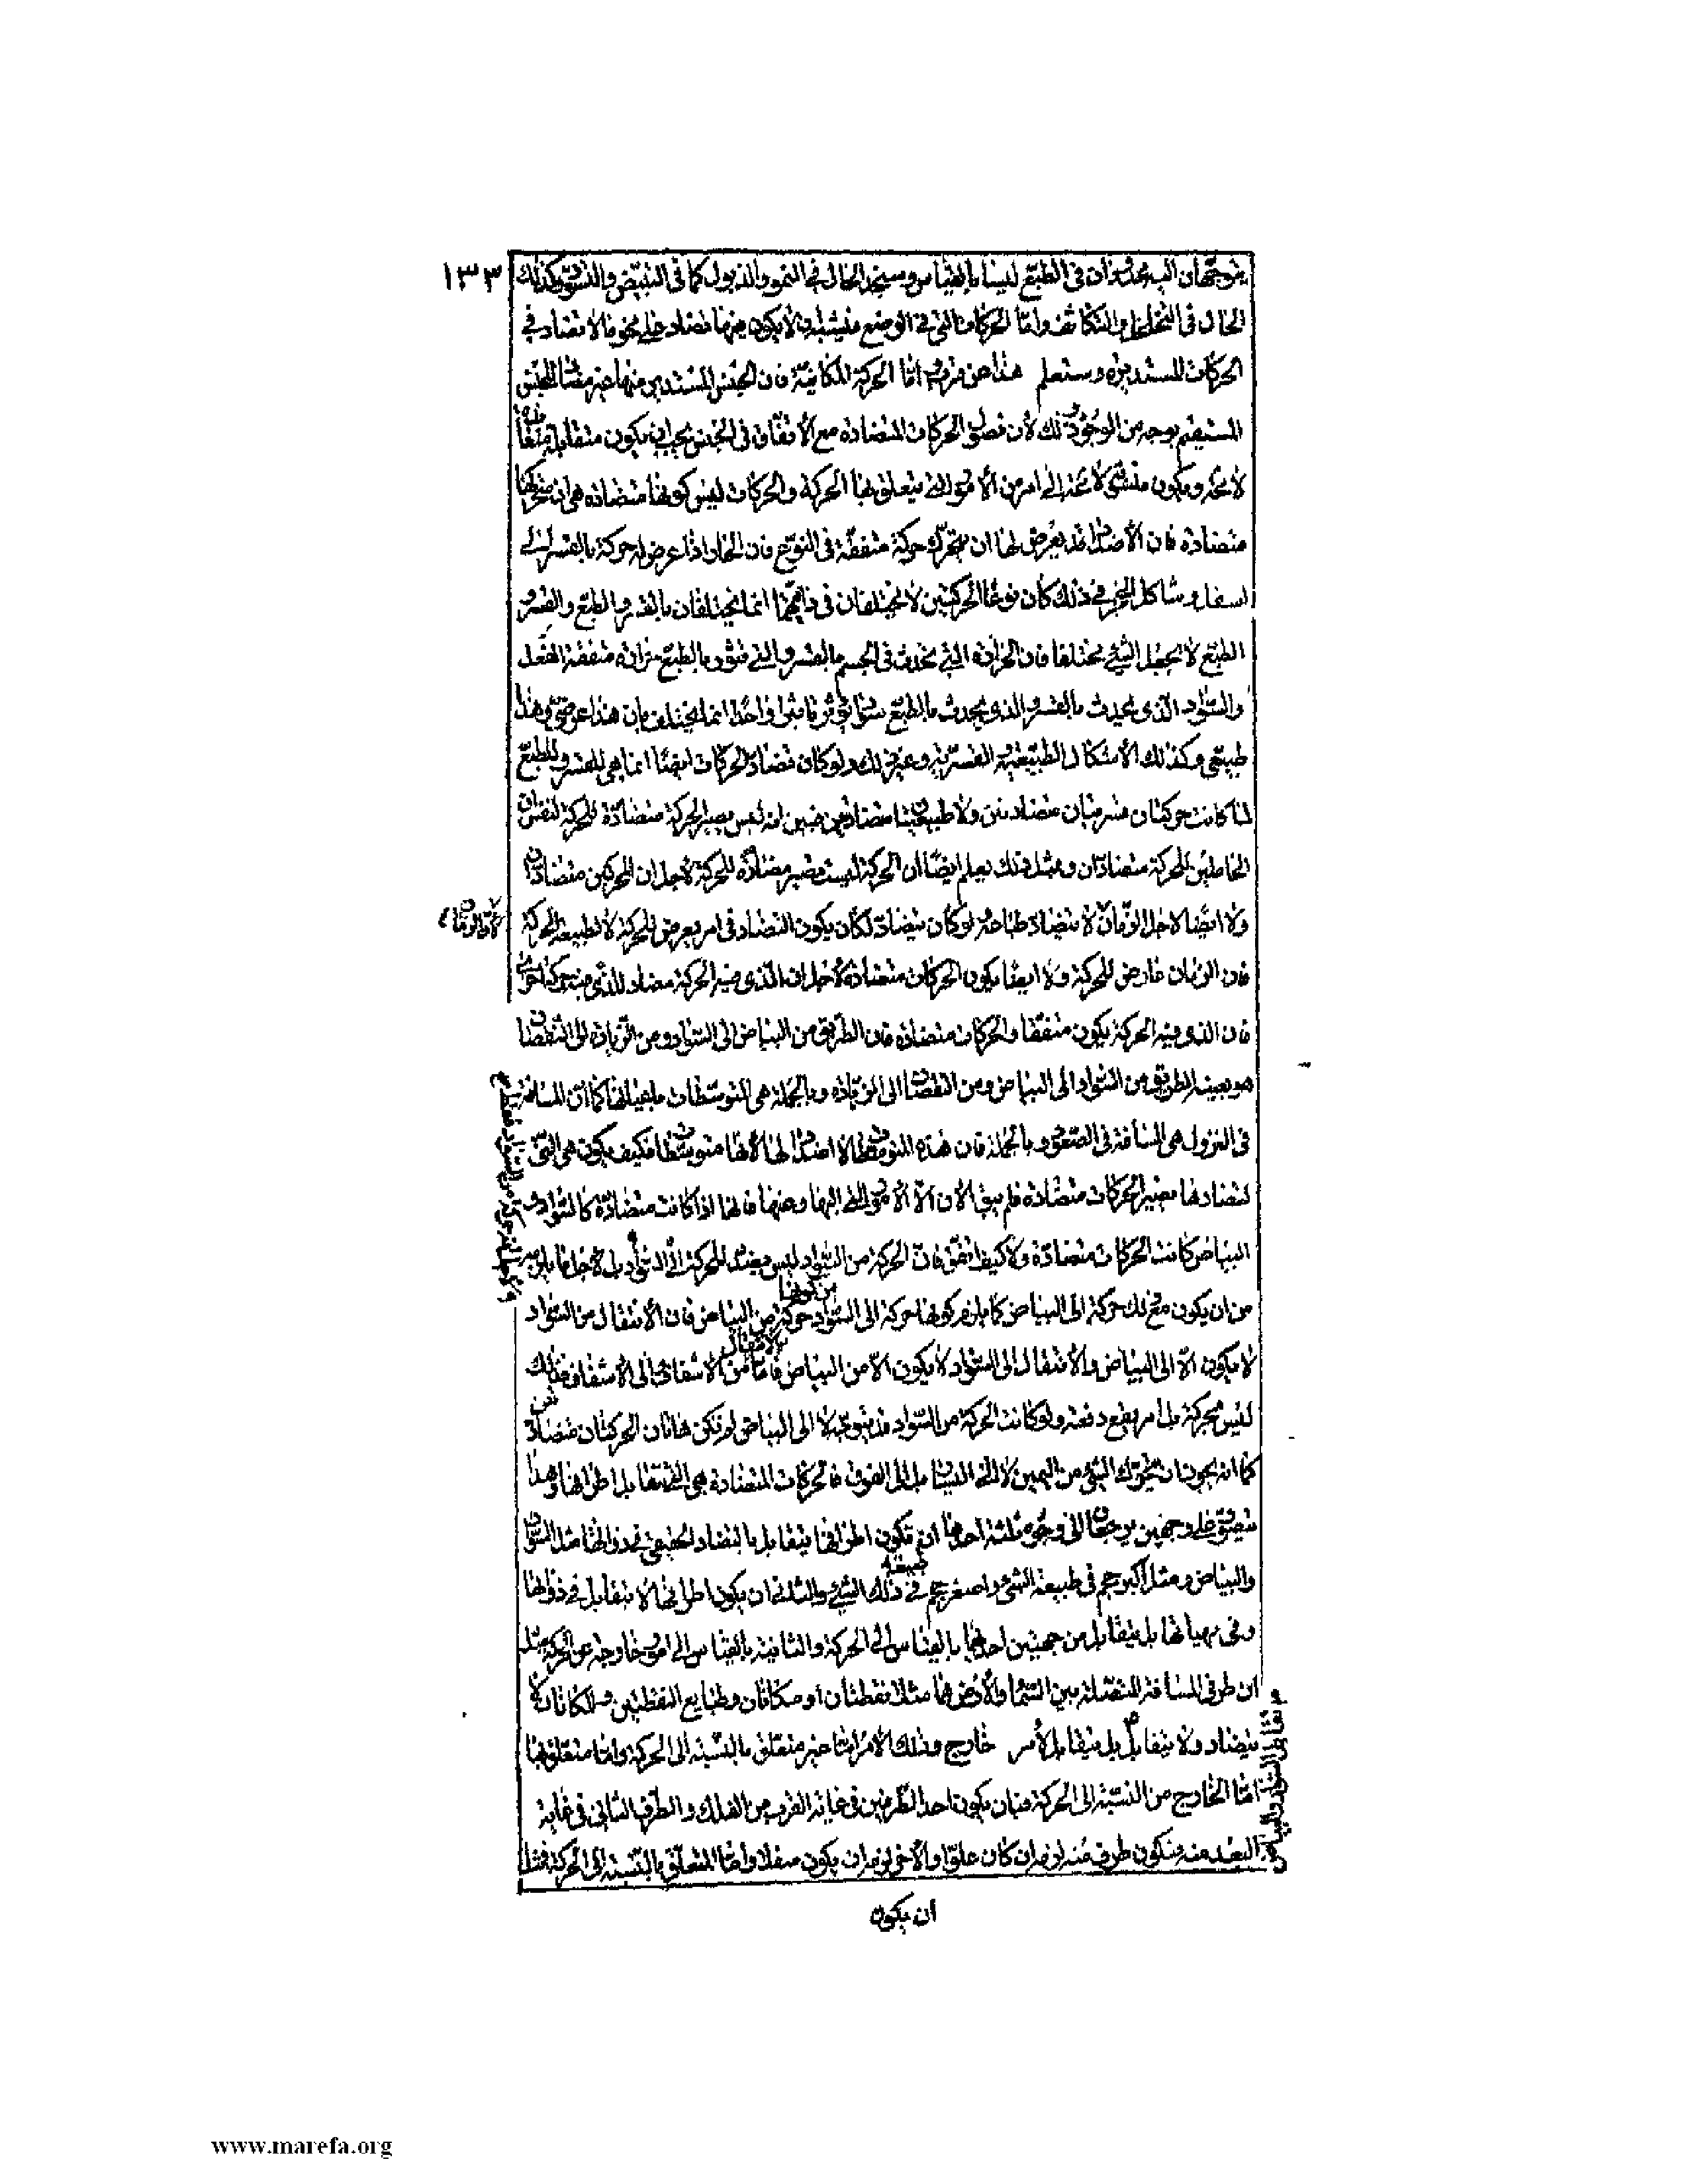 ١٣٣
يتوجهان اليه محدودان في الطبع ليسا بالقياس وسيجد الحال في النمو والذبول كما في التبيض والتسود وكذلك
الحال في التخلخل والتكاثف واما الحركات التي في الوضع فيشبه ان لا يكون فيها تضاد على نحو ما لا تضاد في
الحركات المستديرة وستعلم هذا عن قريب اما الحركة المكانية فان الجنس المستدير منها غير مضاد للجنس
المستقيم بوجه من الوجوه وذلك لأن فصول الحركات المتضادة مع الأتفاق في الجنس يجب ان يكون متقابلة
لا محة ويكون ملتقى لا محة الى امر من الأمور التي يتعلق بها الحركة والحركات ليس كونها متضادة هي ان متحركها
متضادة فان الأضداد قد يعرض لها ان يتحرك حركة متفقة في النوع فان الحار اذا عرض له حركة بالقسر الى
اسفل وشاكل الحجر في ذلك كان نوعا الحركتين لا يختلفان في ذاتهما انما يختلفان بالقسر والطبع والقسر و
الطبع لا يجعل الشيء مختلفا فان الحرارة التي تحدث في الجسم بالقسر والتي تثور بالطبع حرارة متفقة الفعل
والسواد الذي يحدث بالقسر والذي يحدث بالطبع سواد يؤثر تاثيرا واحدا انما يختلف بان هذا عرضي وهذا
طبيعي وكذلك الأشكال الطبيعية والقسرية وغير ذلك ولو كان تضاد الحركات ايضا انما هي للقسر وللطبع
لما كانت حركتان قسريتان متضادتين ولا طبيعيتان متضادتين فبين انه ليس يصير الحركة متضادة للحركة لنفس ان
الحاملين للحركة متضادان وبمثل ذلك يعلم ايضا ان الحركة ليست تصير مضادة للحركة لأجل ان المحركين متضادان
ولا ايضا لاجل الزمان لا يتضاد طباعه ولو كان يتضاد لكان يكون التضاد في امر يعرض للحركة لا لطبيعة الحركة
لأن الزمان
فان الزمان عارض للحركة ولا ايضا يكون الحركات متضادة لأجل ان الذي فيه الحركة مضاد للذي فيه حركة اخرى
فان الذي فيه الحركة يكون متفقا والحركات متضادة فان الطريق من البياض الى السواد ومن الزيادة الى النقصان
هو بعينه الطريق من السواد الى البياض ومن النقصان الى الزيادة وبالجملة هي المتوسطات باعيانها كما أن المسافة
في النزول هي المسافة في الصعود وبالجملة فان هذه المتوسطات لا اضداد لها لأنها متوسطات فكيف يكون هي التي
لتضادها يصير الحركات متضادة فلم يبق الان الا الأمور التي اليها وعنها فانها اذا كانت متضادة كالسواد و
البياض كانت الحركات متضادة ولا كيف اتفق فان الحركة من السواد ليس بضد للحركة الى السواد بل لأجل ما يلزمه
من ان يكون مع ذلك حركة الى البياض كما يلزم كونها حركة الى السواد حركة من البياض فان الأنتقال من السواد
من كونها
لا يكون الا الى البياض والأنتقال الى السواد لا يكون الا من البياض فاما من الأشفاف الى الأشفاف فذلك
الانتقال
ليس بحركة بل امر يقع دفعة ولو كانت الحركة من السواد قد يتوجه لا الى البياض لم تكن هاتان الحركتان متضادتين
كما انه يجوز ان يتحرك الشيء من اليمين لا الى اليسار بل الى الفوق فالحركات المتضادة هي التي تتقابل اطرافها وهذا
يتصور على وجهين يرجعان الى وجوه ثلثة احدها ان تكون اطرافها يتقابل بالتضاد الحقيقي في ذواتها مثل السواد
والبياض ومثل اكبر حجم في طبيعة الشيء واصغر حجم في ذلك الشيء والثاني ان يكون اطرافها لا يتقابل في ذواتها
طبيعة
وفي ماهياتها بل يتقابل من جهتين احداهما بالقياس الى الحركة والثانية بالقياس الى امور خارجة عن الحركة مثل
ان طرفي المسافة المتصلة بين السماء والأرض هما مثلا نقطتان او مكانان وطبايع النقطتين والمكانان لا
يتضاد ولا يتقابل بل يتقابل لأمر خارج وذلك الأمر اما غير متعلق بالنسبة الى الحركة واما متعلق بها
اما الخارج من النسبة الى الحركة فبان يكون احد الطرفين في غاية القرب من الفلك والطرف الثاني في غاية
البعد منه فيكون طرف منه لزمه ان كان علوا والأخر لزمه ان يكون سفلا واما المتعلق بالنسبة الى الحركة فمثل
أن يكون
www.marefa.org